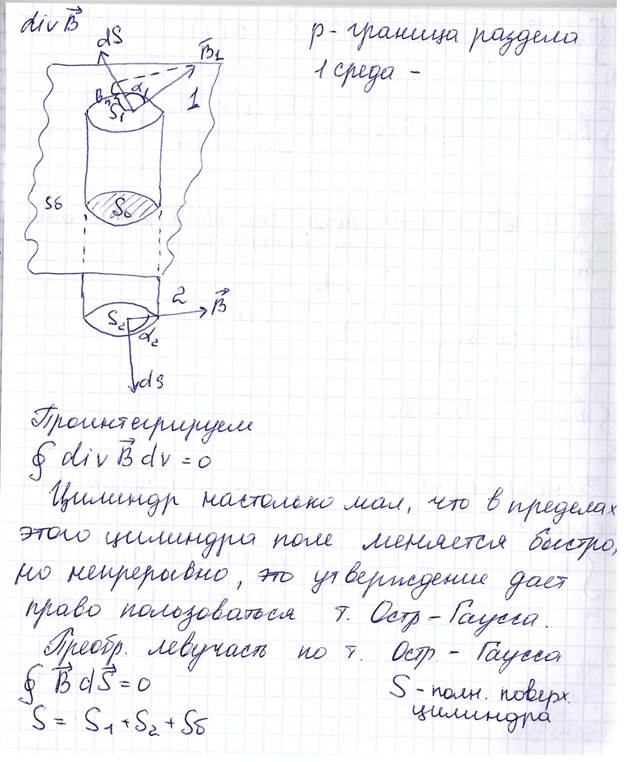 div B⃗
dS
B⃗₁
p - граница раздела
1 среда -
α₁
S₁
1
Sб
S₀
2
S₂
B⃗
α₂
dS
Проинтегрируем
∮ div B⃗ dv = 0
Цилиндр настолько мал, что в пределах
этого цилиндра поле меняется быстро,
но непрерывно, это утверждение дает
право пользоваться т. Остр-Гаусса.
Преобр. левучасть по т. Остр.-Гаусса
∮ B⃗ dS⃗ = 0
S - полн. поверх.
цилиндра
S = S₁ + S₂ + Sб